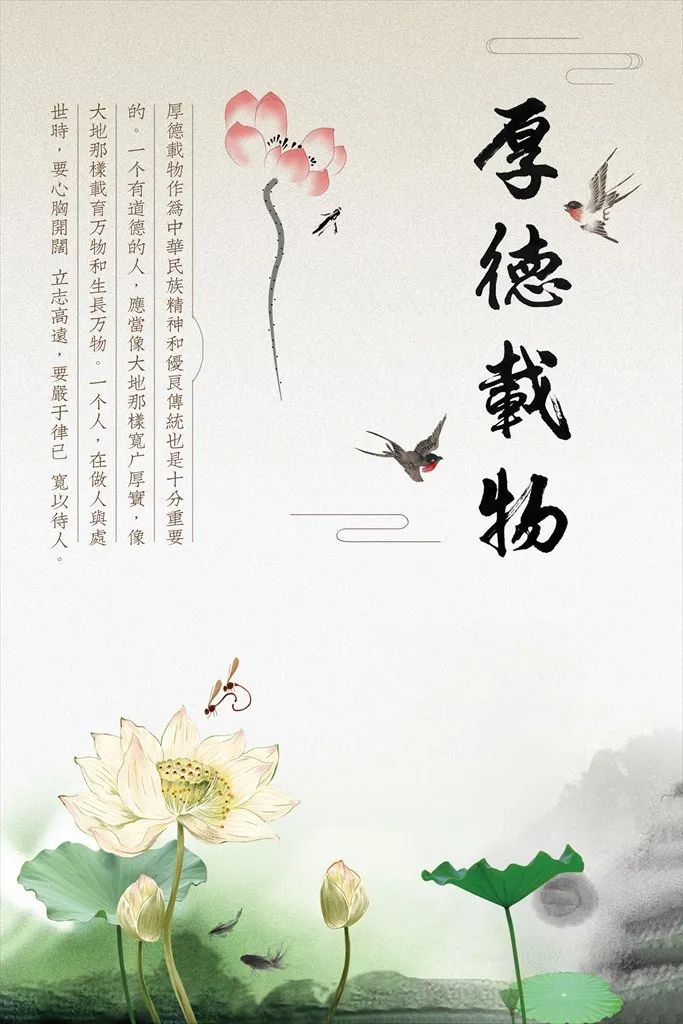 厚德載物
厚德載物作爲中華民族精神和優良傳統也是十分重要
的。一个有道德的人，應當像大地那樣寬广厚實，像
大地那樣載育万物和生長万物。一个人，在做人與處
世時，要心胸開闊 立志高遠，要嚴于律已 寬以待人。